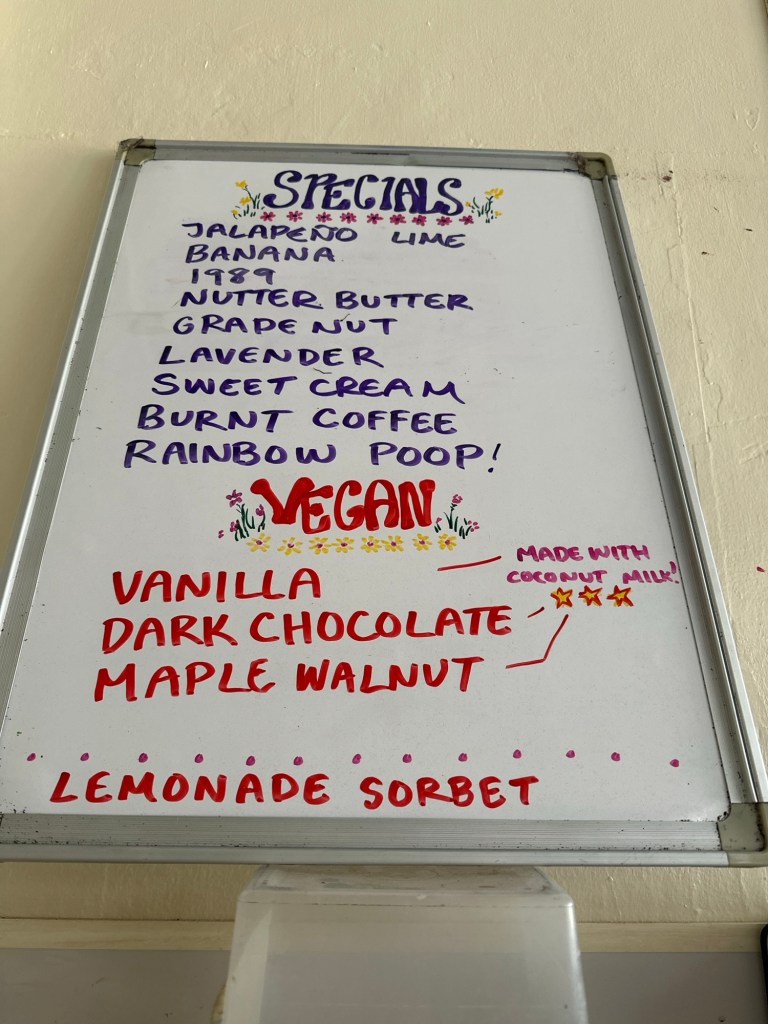 SPECIALS
JALAPEÑO LIME
BANANA
1989
NUTTER BUTTER
GRAPE NUT
LAVENDER
SWEET CREAM
BURNT COFFEE
RAINBOW POOP!
VEGAN
MADE WITH
COCONUT MILK!
VANILLA
DARK CHOCOLATE
MAPLE WALNUT
LEMONADE SORBET